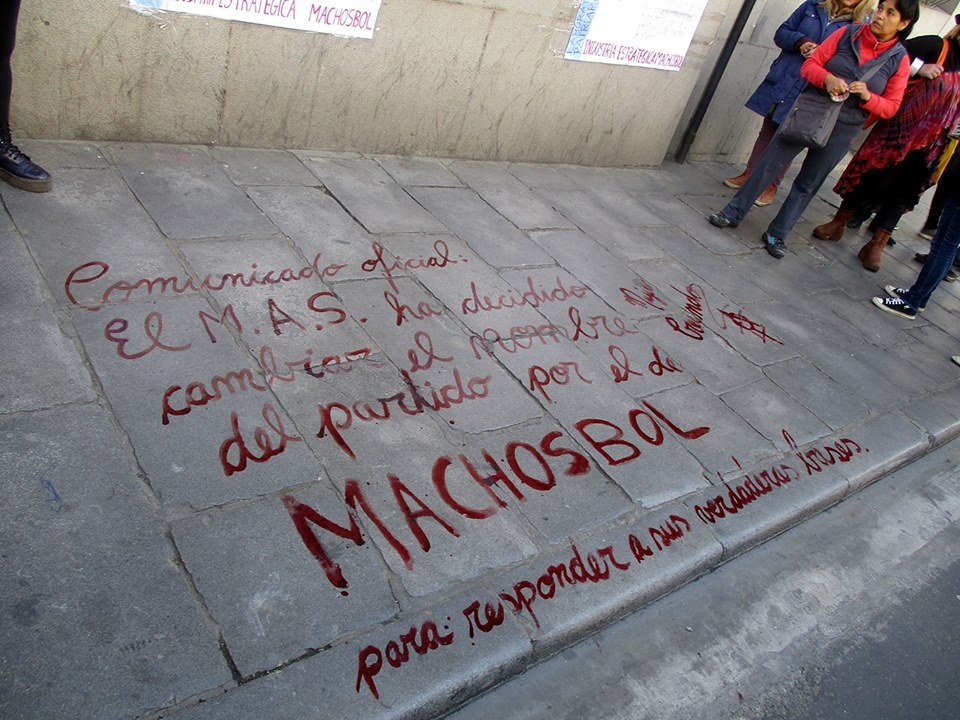 ESTRATÉGICA MACHOSBOL
INDUSTRIA ESTRATEGICA MACHOSBOL
Comunicado oficial:
El M.A.S. ha decidido
cambiar el nombre
del partido por el de
MACHOSBOL
para responder a sus verdaderas bases.